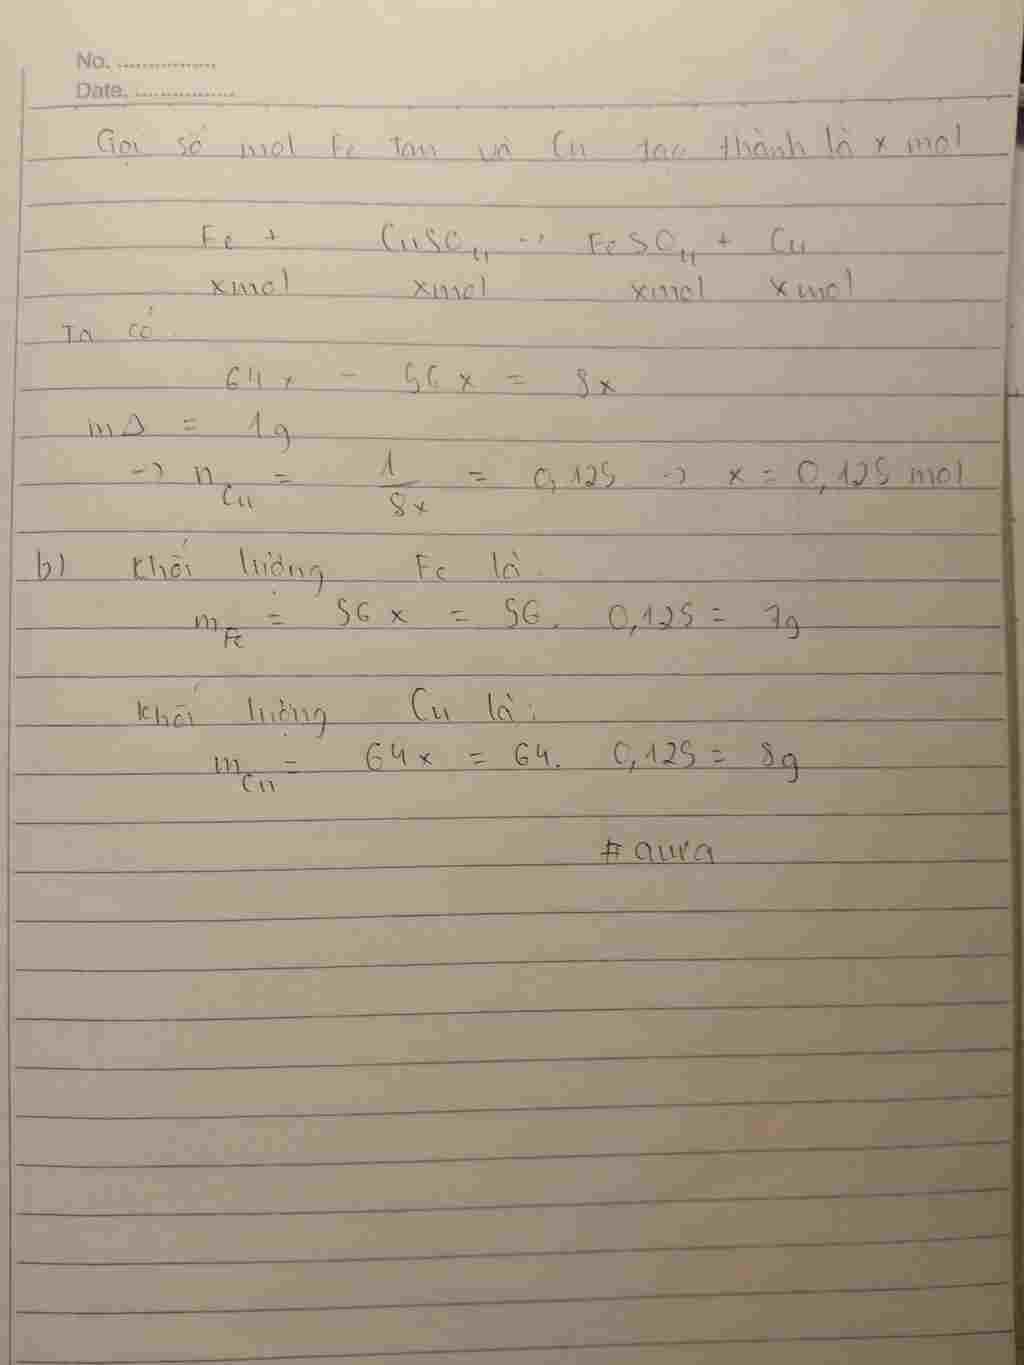 No. ................
Date. ................
Gọi số mol Fe tan và Cu tạo thành là x mol
Fe + CuSO4 -> FeSO4 + Cu
xmol xmol xmol xmol
Ta có
64x - 56x = 8x
mΔ = 1g
-> nCu = 1/8x = 0,125 -> x = 0,125 mol
b) Khối lượng Fe là:
mFe = 56x = 56. 0,125 = 7g
Khối lượng Cu là:
mCu = 64x = 64. 0,125 = 8g
# aura